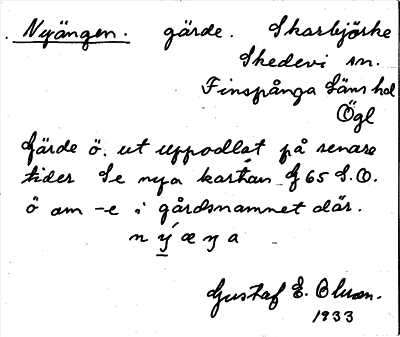 Nyängen. gärde. Skarbjörke
Skedevi sn.
Finspånga Läns hd
Ögl
Gärde ö. ut uppodlat på senare
tider Se nya kartan f 65 S.O.
ö om -e i gårdsnamnet där.
n ý æ ŋ a
Gustaf E. Olsson.
1933